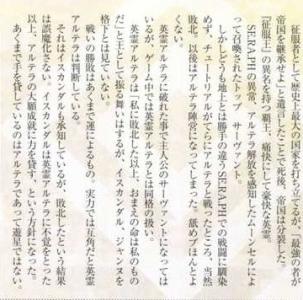 征服者として人類史に最大の版図を打ちたてるが、「最強のものが
帝国を継承せよ」と遺言したことで死後、帝国は分裂した。
「征服王」の異名を持つ覇王。痛快にして豪快な英霊。
SE.RA.PHの異常、アルテラ解析を感知したムーンセルによ
って召喚されたトップ・サーヴァント。
しかしどうも地上とは勝手の違うSE.RA.PHでの戦闘に馴染
めず、チュートリアルがてらにアルテラと戦ったところ、当然
敗北。以後はアルテラ陣営になってしまった。舐めプほんとよ
くない。
英霊アルテラに破れた事で主人公のサーヴァントになっては
いるが、ゲーム中では英霊アルテラとは同格の扱い。
英霊アルテラは「私に敗北した以上、おまえの命は私のもの
だ」と王として振る舞いはするが、イスカンダル、ジャンヌを
格下とは見ていない。
戦いの勝敗はあくまで運によるもの。実力では互角だと英霊
アルテラは判断している。
それはイスカンダルも承知しているが、敗北したという結果
は誤魔化さない。イスカンダルは英霊アルテラに不覚をとった
以上、アルテラの大願成就に力を貸す、という方針になった。
あくまで手を貸しているのはアルテラであって遊星ではない。